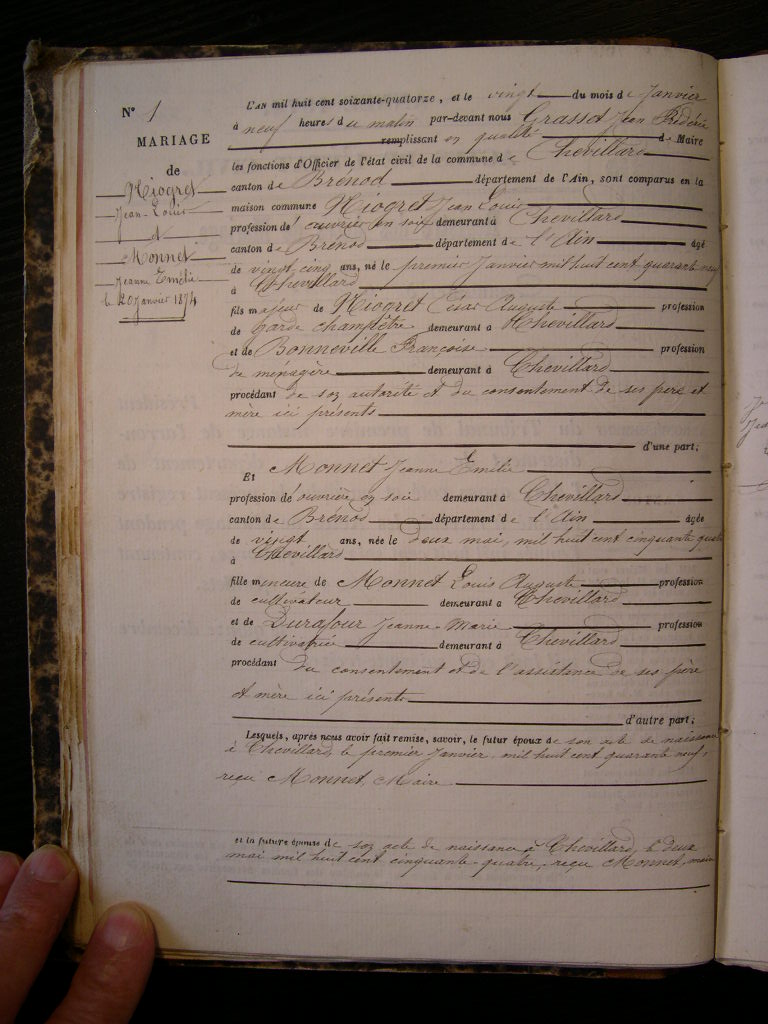 N° 1
MARIAGE
de
Miogret
Jean-Louis
et
Monnet
Jeanne Emélie
le 20 Janvier 1874
L'AN mil huit cent soixante-quatorze, et le vingt du mois de Janvier
à neuf heures du matin par-devant nous Grasset Jean Fréderic
remplissant en qualité de Maire
les fonctions d'Officier de l'état civil de la commune de Chevillard
canton de Brénod département de l'Ain, sont comparus en la
maison commune Miogret Jean Louis
profession de ouvrier en soie demeurant à Chevillard
canton de Brénod département de l'Ain âgé
de vingt cinq ans, né le premier Janvier mil huit cent quarante neuf
à Chevillard
fils majeur de Miogret César Auguste profession
de garde champêtre demeurant à Chevillard
et de Bonneville Françoise profession
de ménagère demeurant à Chevillard
procédant de son autorité et du consentement de ses père et
mère ici présents
d'une part;
Et Monnet Jeanne Emélie
profession de ouvrière en soie demeurant à Chevillard
canton de Brénod département de l'Ain âgée
de vingt ans, née le deux mai, mil huit cent cinquante quatre
à Chevillard
fille mineure de Monnet Louis Auguste profession
de cultivateur demeurant à Chevillard
et de Durafour Jeanne-Marie profession
de cultivatrice demeurant à Chevillard
procédant du consentement et de l'assistance de ses père
et mère ici présents
d'autre part;
Lesquels, après nous avoir fait remise, savoir, le futur époux de son acte de naissance
à Chevillard, le premier Janvier, mil huit cent quarante neuf,
reçu Monnet, Maire
et la future épouse de son acte de naissance à Chevillard, le deux
mai mil huit cent cinquante-quatre, reçu Monnet, maire